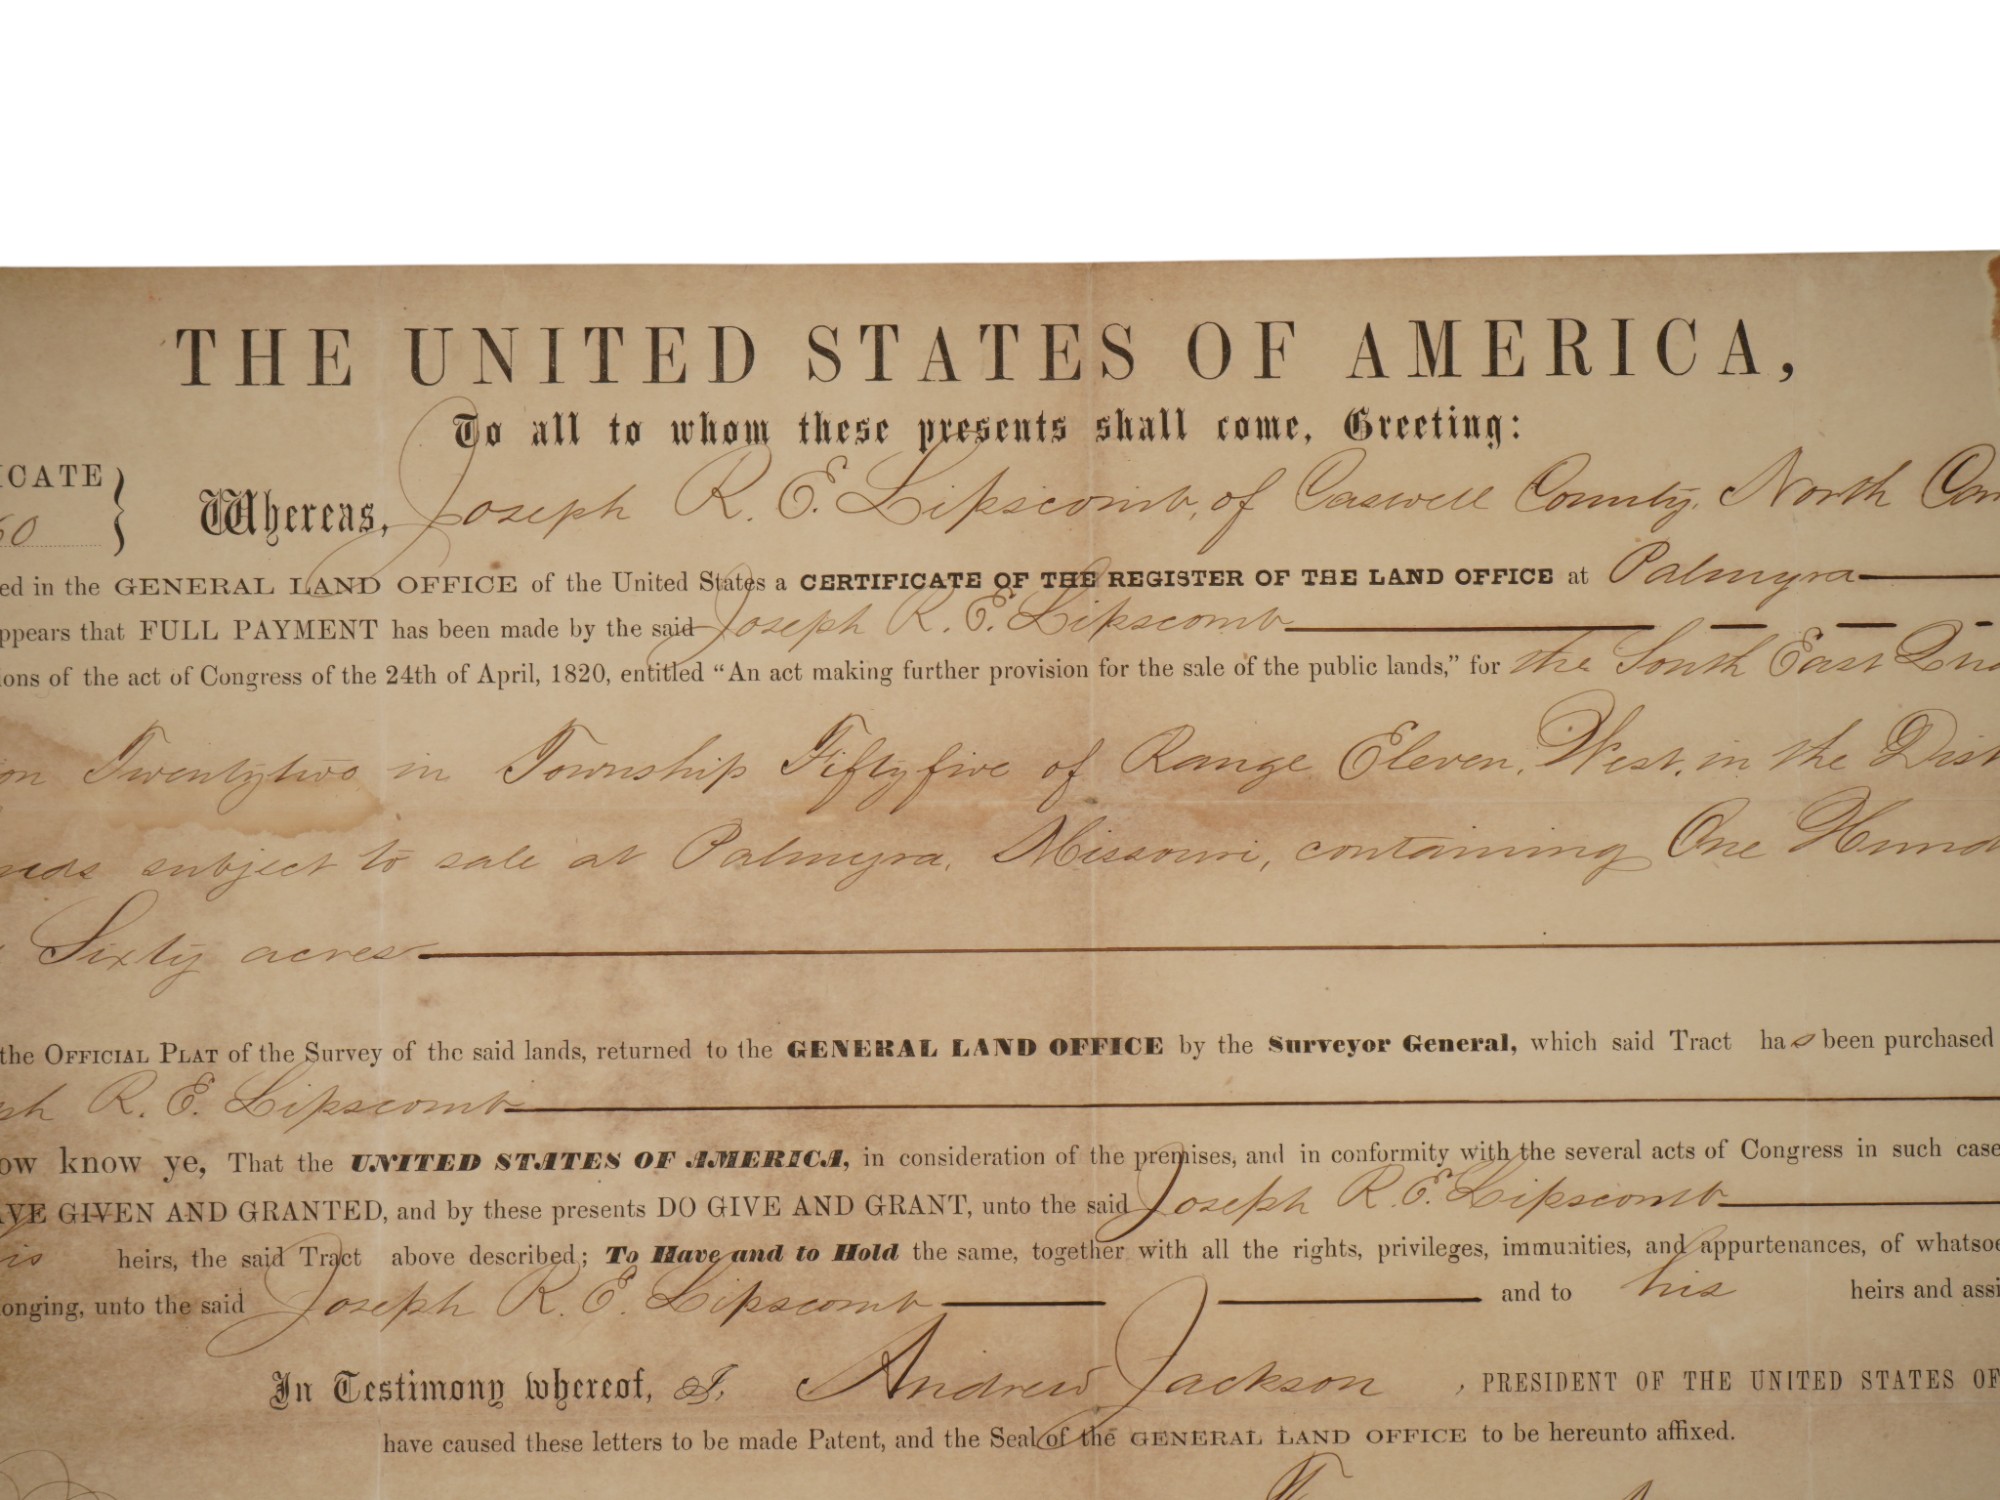 THE UNITED STATES OF AMERICA,
To all to whom these presents shall come, Greeting:
ICATE
60
Whereas, Joseph R. E. Lipscomb, of Caswell County, North Car
ed in the GENERAL LAND OFFICE of the United States a CERTIFICATE OF THE REGISTER OF THE LAND OFFICE at Palmyra
ppears that FULL PAYMENT has been made by the said Joseph R. E. Lipscomb
ions of the act of Congress of the 24th of April, 1820, entitled “An act making further provision for the sale of the public lands,” for the South East Qua
on Twentytwo in Township Fiftyfive of Range Eleven, West, in the Dist
nds subject to sale at Palmyra, Missouri, containing One Hund
Sixty acres
the OFFICIAL PLAT of the Survey of the said lands, returned to the GENERAL LAND OFFICE by the Surveyor General, which said Tract has been purchased
ph R. E. Lipscomb
ow know ye, That the UNITED STATES OF AMERICA, in consideration of the premises, and in conformity with the several acts of Congress in such case
AVE GIVEN AND GRANTED, and by these presents DO GIVE AND GRANT, unto the said Joseph R. E. Lipscomb
is heirs, the said Tract above described; To Have and to Hold the same, together with all the rights, privileges, immunities, and appurtenances, of whatsoe
onging, unto the said Joseph R. E. Lipscomb and to his heirs and assi
In Testimony whereof, I, Andrew Jackson, PRESIDENT OF THE UNITED STATES OF
have caused these letters to be made Patent, and the Seal of the GENERAL LAND OFFICE to be hereunto affixed.